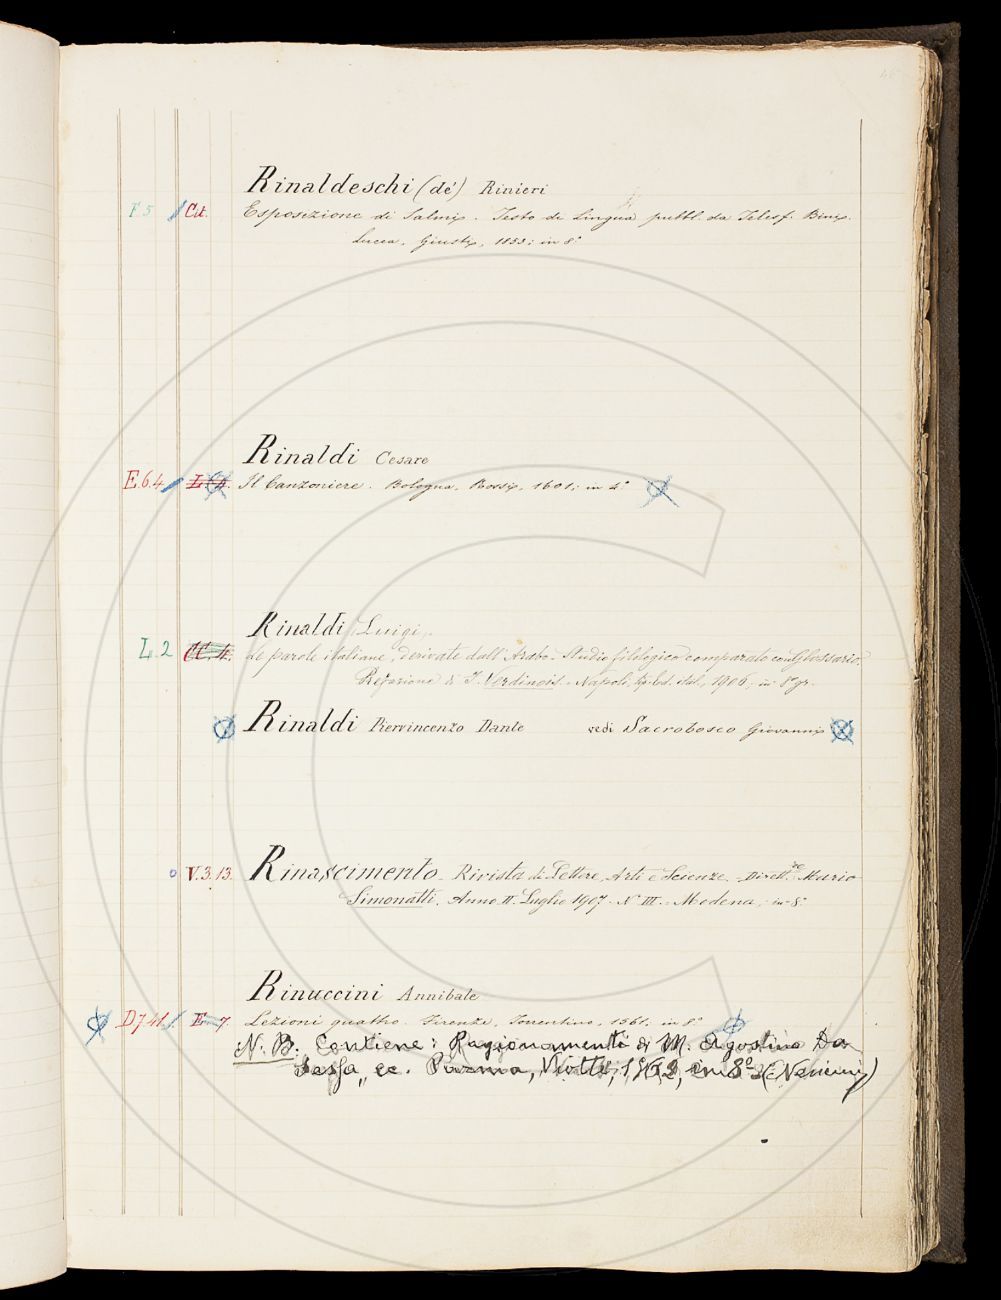 Rinaldeschi (de') Rinieri
F. 5 Cit. Esposizione di Salmi. Testo di Lingua pubbl. da Telesf. Bini.
Lucca, Giusti, 1853; in 8°
Rinaldi Cesare
E.6.4 Il Canzoniere. Bologna, Rossi, 1601; in 4°
Rinaldi Luigi.
L. 2 CC. 4. Le parole italiane, derivate dall'Arabo. Studio filologico comparato con Glossario.
Prefazione di I. Verdinois. Napoli, 1906; in 8° gr.
Rinaldi Piervincenzo Dante vedi Sacrobosco Giovanni
V.3.13. Rinascimento. Rivista di Lettere, Arti e Scienze, Dirett.re Mario
Simonatti. Anno II. Luglio 1907. N. III. Modena; in 8°
Rinuccini Annibale
D.7.41. E 7. Lezioni quattro. Firenze, Torrentino, 1561; in 8°
N. B. Contiene: Ragionamenti di M. Agostino Da
Sessa, ec. Parma, Viotti, in 8° (Nencini)